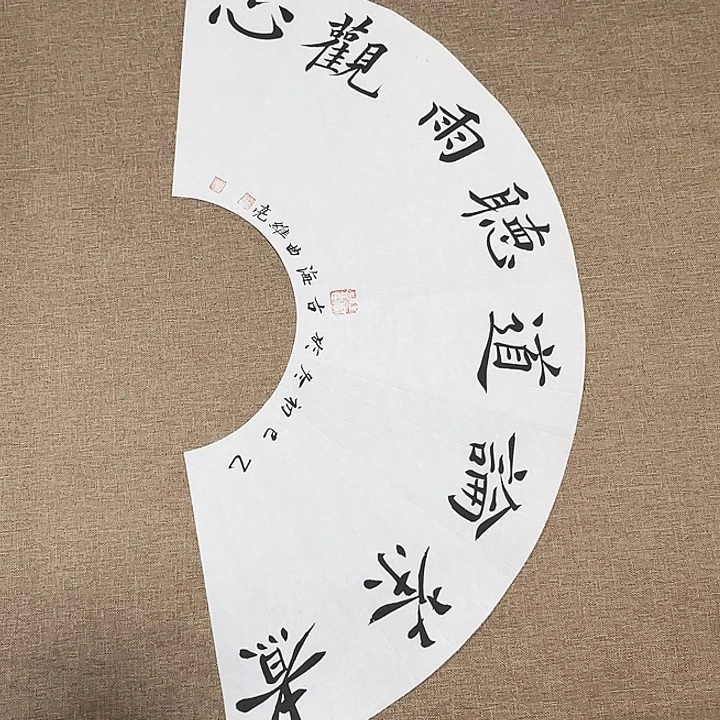 煮茶論道聽雨觀心
乙巳初冬於古海曲維亮